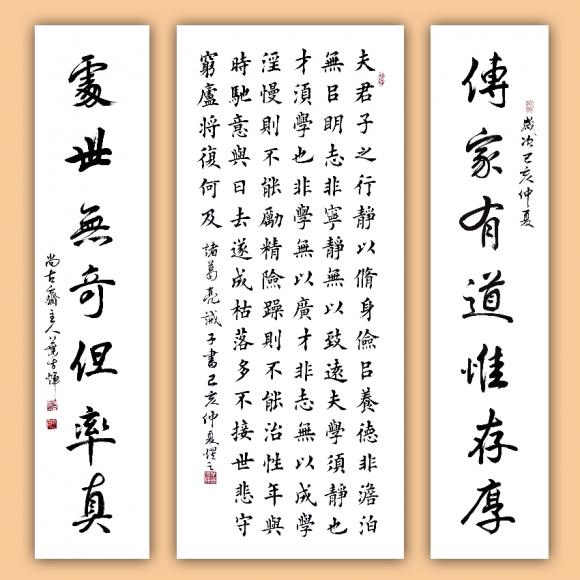 傳家有道惟存厚
歲次己亥仲夏
夫君子之行靜以脩身儉㠯養德非澹泊
無㠯明志非寧靜無以致遠夫學須靜也
才須學也非學無以廣才非志無以成學
淫慢則不能勵精險躁則不能治性年與
時馳意與日去遂成枯落多不接世悲守
窮廬將復何及
諸葛亮誡子書己亥仲夏
處世無奇但率真
尚古齋主人葉